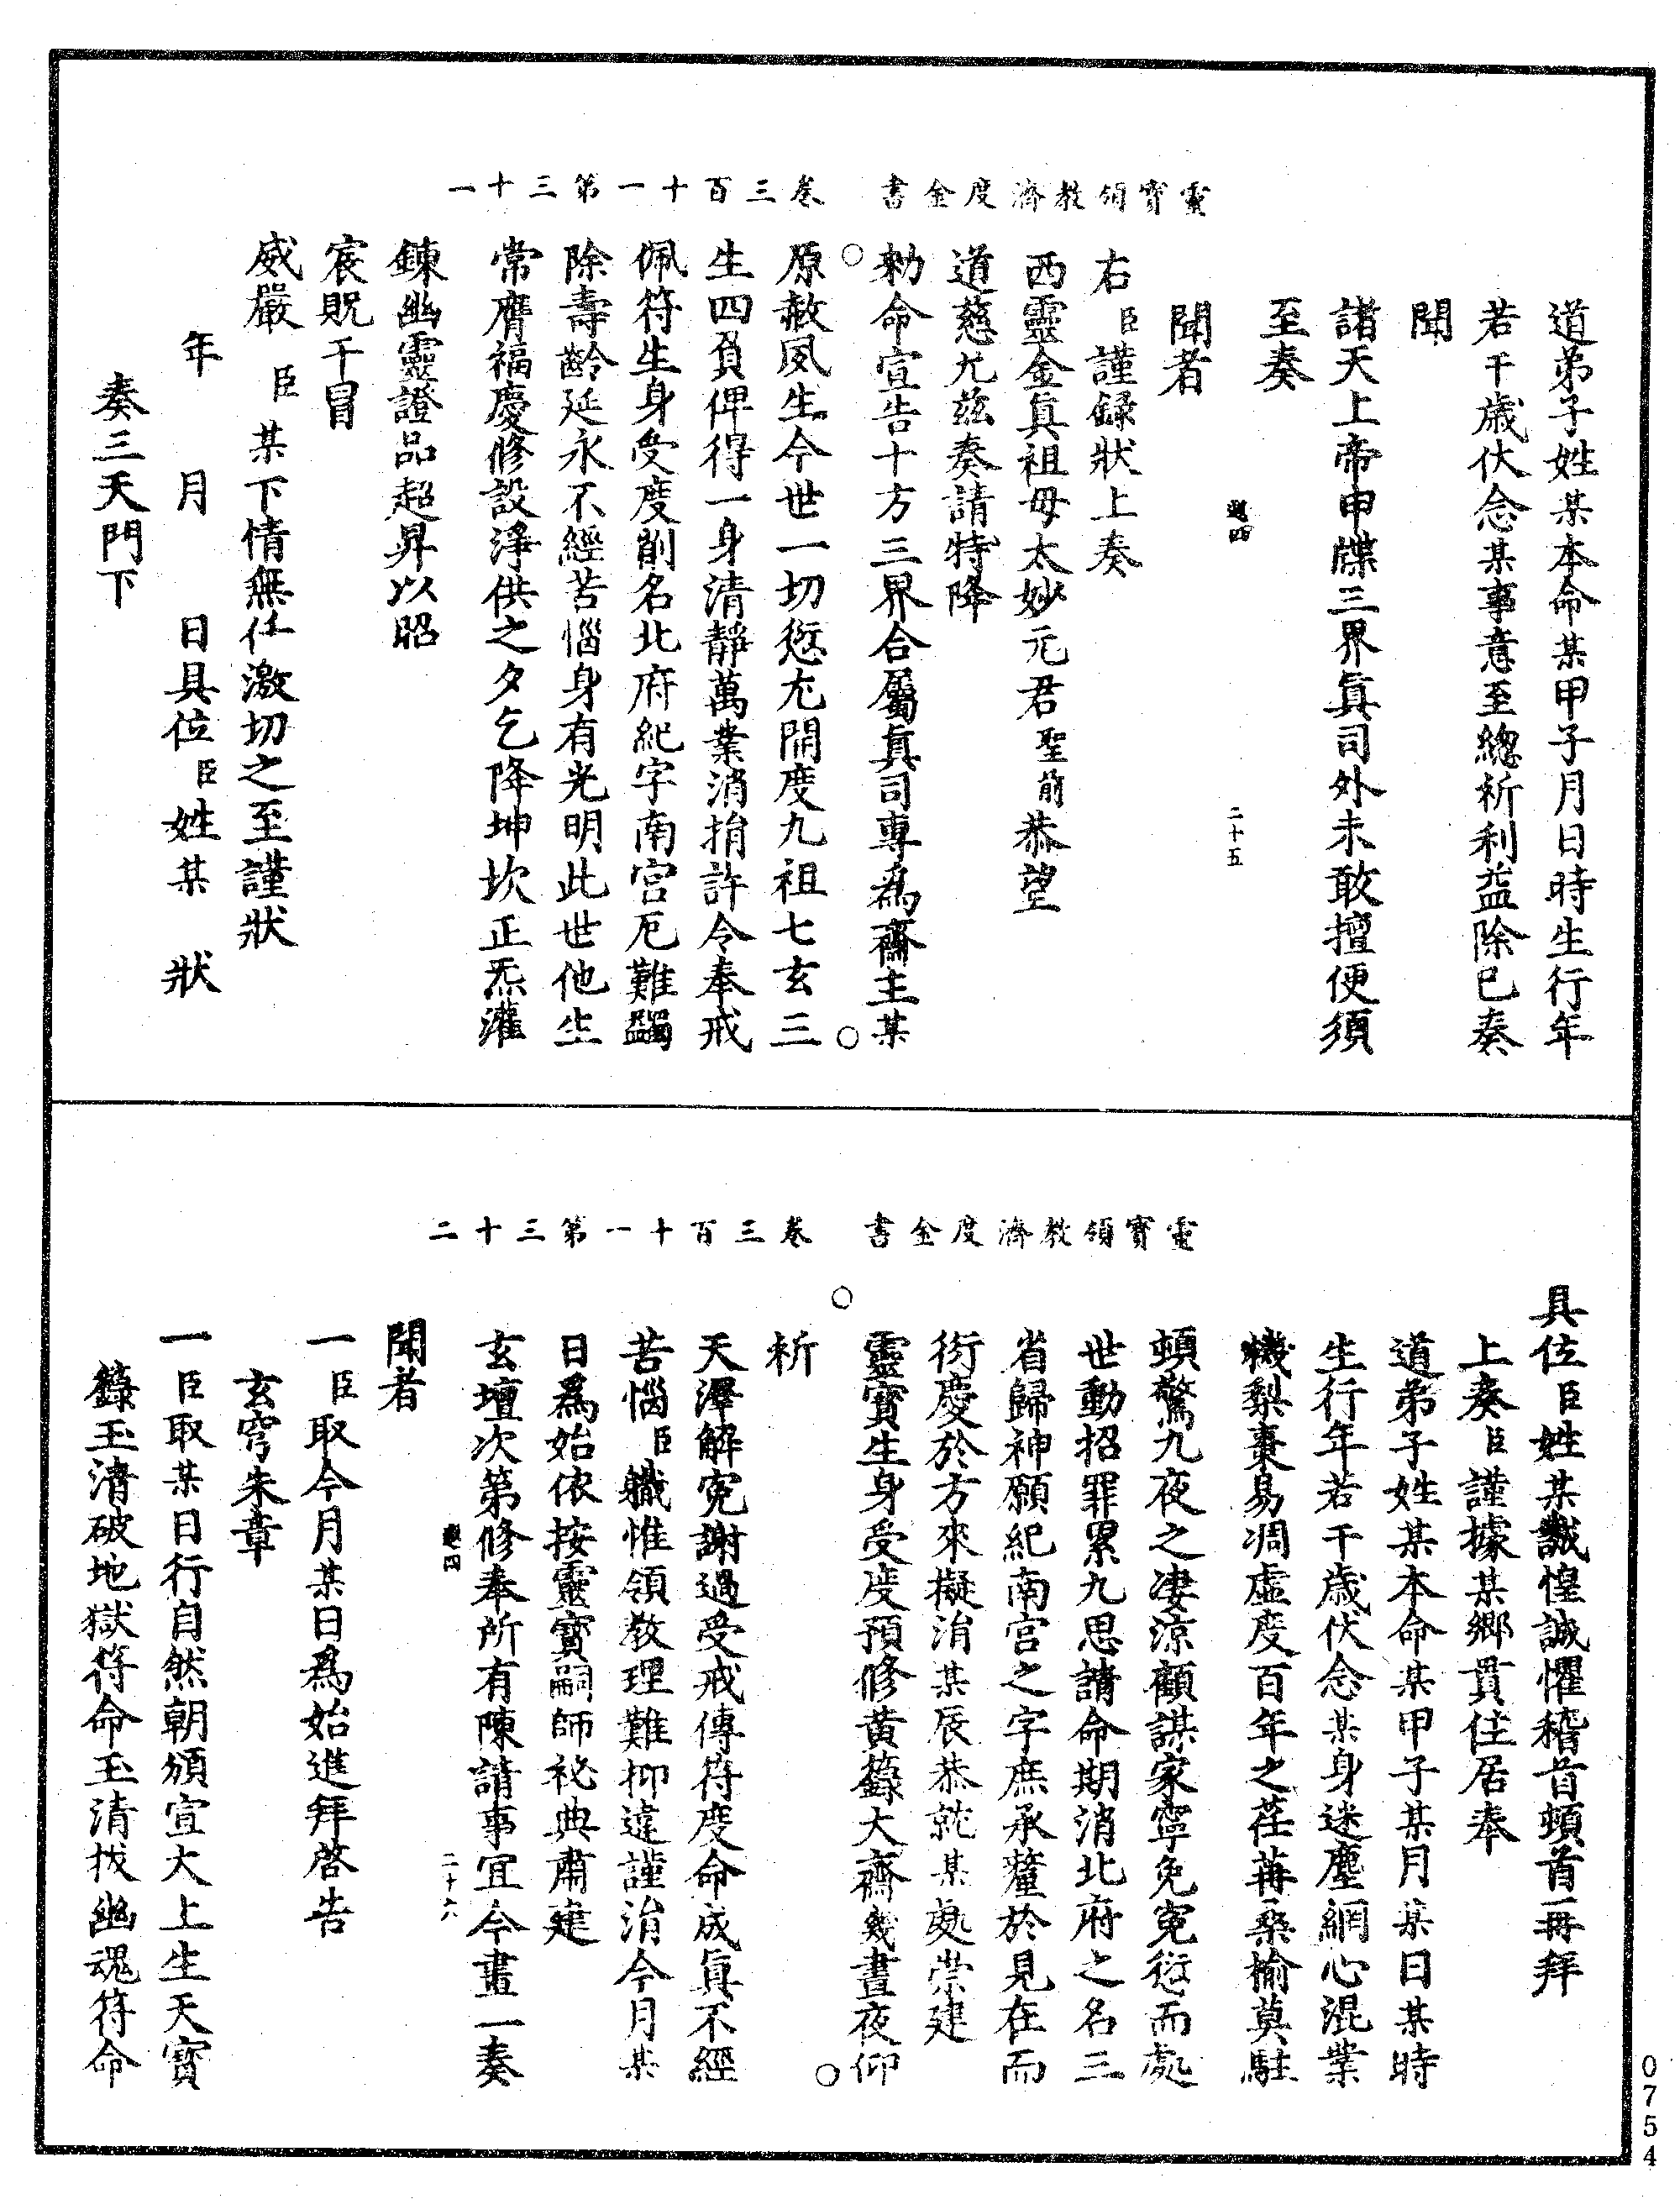 靈寶領教濟度金書　卷三百十一第三十一
道弟子姓某本命某甲子月日時生行年
若干歲伏念某事意至總祈利益除已奏
聞
諸天上帝申牒三界眞司外未敢擅便須
至奏
二十五
聞者
右臣謹録狀上奏
西靈金眞祖母太妙元君聖前恭望
道慈允茲奏請特降
勑命宣告十方三界合屬眞司專爲齋主某
原赦夙生今世一切愆尤開度九祖七玄三
生四負俾得一身清靜萬業消捐許令奉戒
佩符生身受度削名北府紀字南宮厄難蠲
除壽齡延永不經苦惱身有光明此世他生
常膺福慶修設淨供之夕乞降坤坎正炁灌
鍊幽靈證品超昇以昭
宸貺干冒
威嚴臣某下情無任激切之至謹狀
年　月　日具位臣姓某　狀
奏三天門下
靈寶領教濟度金書　卷三百十一第三十二
具位臣姓某誠惶誠懼稽首頓首再拜
上奏臣謹據某鄉貫住居奉
道弟子姓某本命某甲子某月某日某時
生行年若干歲伏念某身迷塵網心混業
機梨棗易凋虛度百年之荏苒桑榆莫駐
頓驚九夜之淒涼顧謀家寧免寃愆而處
世動招罪累九思請命期消北府之名三
省歸神願紀南宮之字庶承釐於見在而
衍慶於方來擬涓某辰恭就某處崇建
靈寶生身受度預修黃籙大齋幾晝夜仰
祈
天澤解寃謝過受戒傳符度命成眞不經
苦惱臣職惟領教理難抑違謹涓今月某
日爲始依按靈寶嗣師祕典肅建
玄壇次第修奉所有陳請事宜今畫一奏
二十六
聞者
一臣取今月某日爲始進拜啓告
玄穹朱章
一臣取某日行自然朝頒宣大上生天寶
籙玉清破地獄符命玉清拔幽魂符命
0754